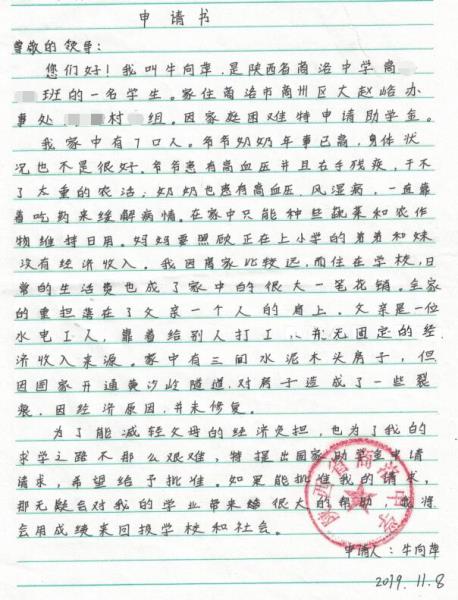 申请书
尊敬的领导:
您们好!我叫牛向萍,是陕西省商洛中学高
班的一名学生。家住商洛市商州区大赵峪办
事处 村 组。因家庭困难特申请助学金。
我家中有7口人。爷爷奶奶年事已高,身体状
况也不是很好。爷爷患有高血压并且右手残疾,干不
了太重的农活;奶奶也患有高血压、风湿病,一直靠
着吃药来缓解病情。在家中只能种些蔬菜和农作
物维持日用。妈妈要照顾正在上小学的弟弟和妹
没有经济收入。我因离家比较远,而住在学校,日
常的生活费也成了家中的很大一笔花销。全家
的重担落在了父亲一个人的肩上。父亲是一位
水电工人,靠着给别人打工,并无固定的经
济收入来源。家中有三间水泥木头房子,但
因国家开通黄沙岭隧道,对房子造成了一些裂
裂,因经济原因,并未修复。
为了能减轻父母的经济负担,也为了我的
求学之路不那么艰难,特提出国家助学金申请
请求,希望给予批准。如果能批准我的请求,
那无疑会对我的学业带来很大的帮助 我将
会用成绩来回报学校和社会。
陕西省商洛中学
申请人:牛向萍
2019.11.8